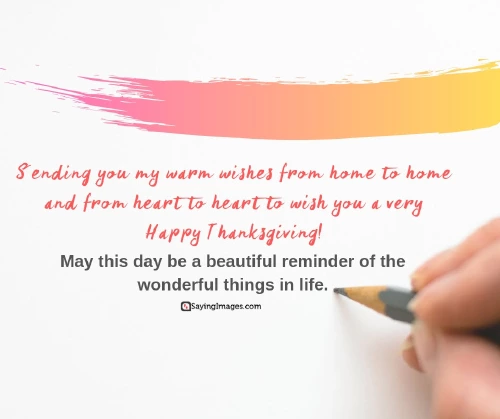 Sending you my warm wishes from home to home
and from heart to heart to wish you a very
Happy Thanksgiving!
May this day be a beautiful reminder of the
wonderful things in life.
SayingImages.com